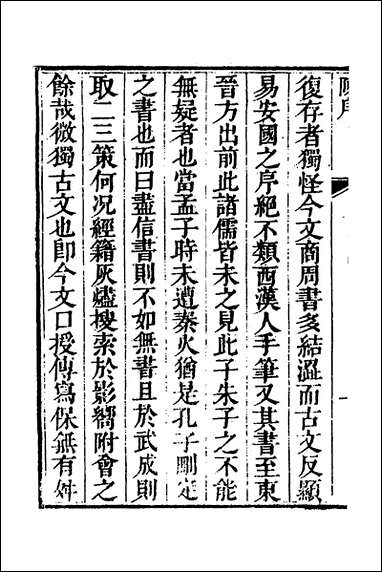 復存者獨怪今文商周書多結澀而古文反顯
易安國之序絕不類西漢人手筆又其書至東
晉方出前此諸儒皆未之見此子朱子之不能
無疑者也當孟子時未遭秦火猶是孔子刪定
之書也而曰盡信書則不如無書且於武成則
取二三策何况經籍灰燼搜索於影嚮附會之
餘哉微獨古文也卽今文口授傳寫保無有舛